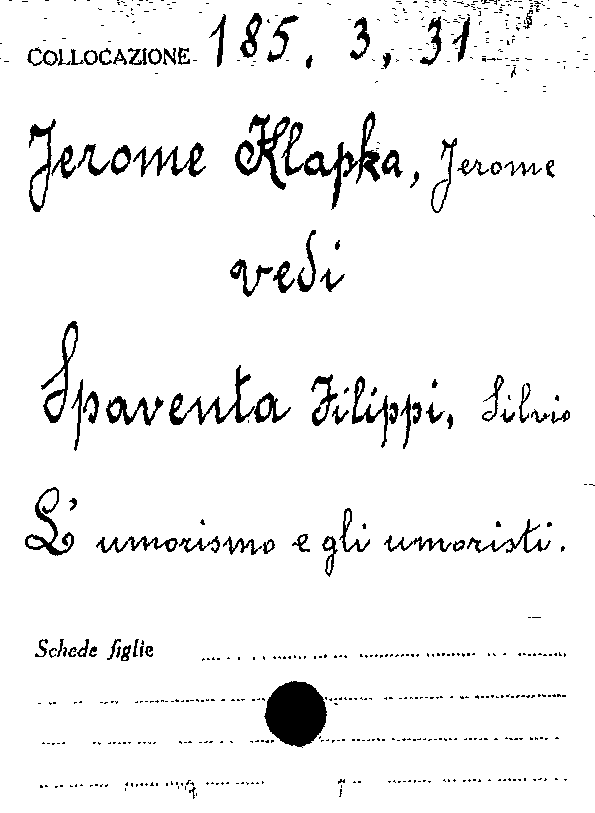 COLLOCAZIONE 185. 3, 31
Jerome Klapka, Jerome
vedi
Spaventa Filippi, Silvio
L'umorismo e gli umoristi.
Schede figlie